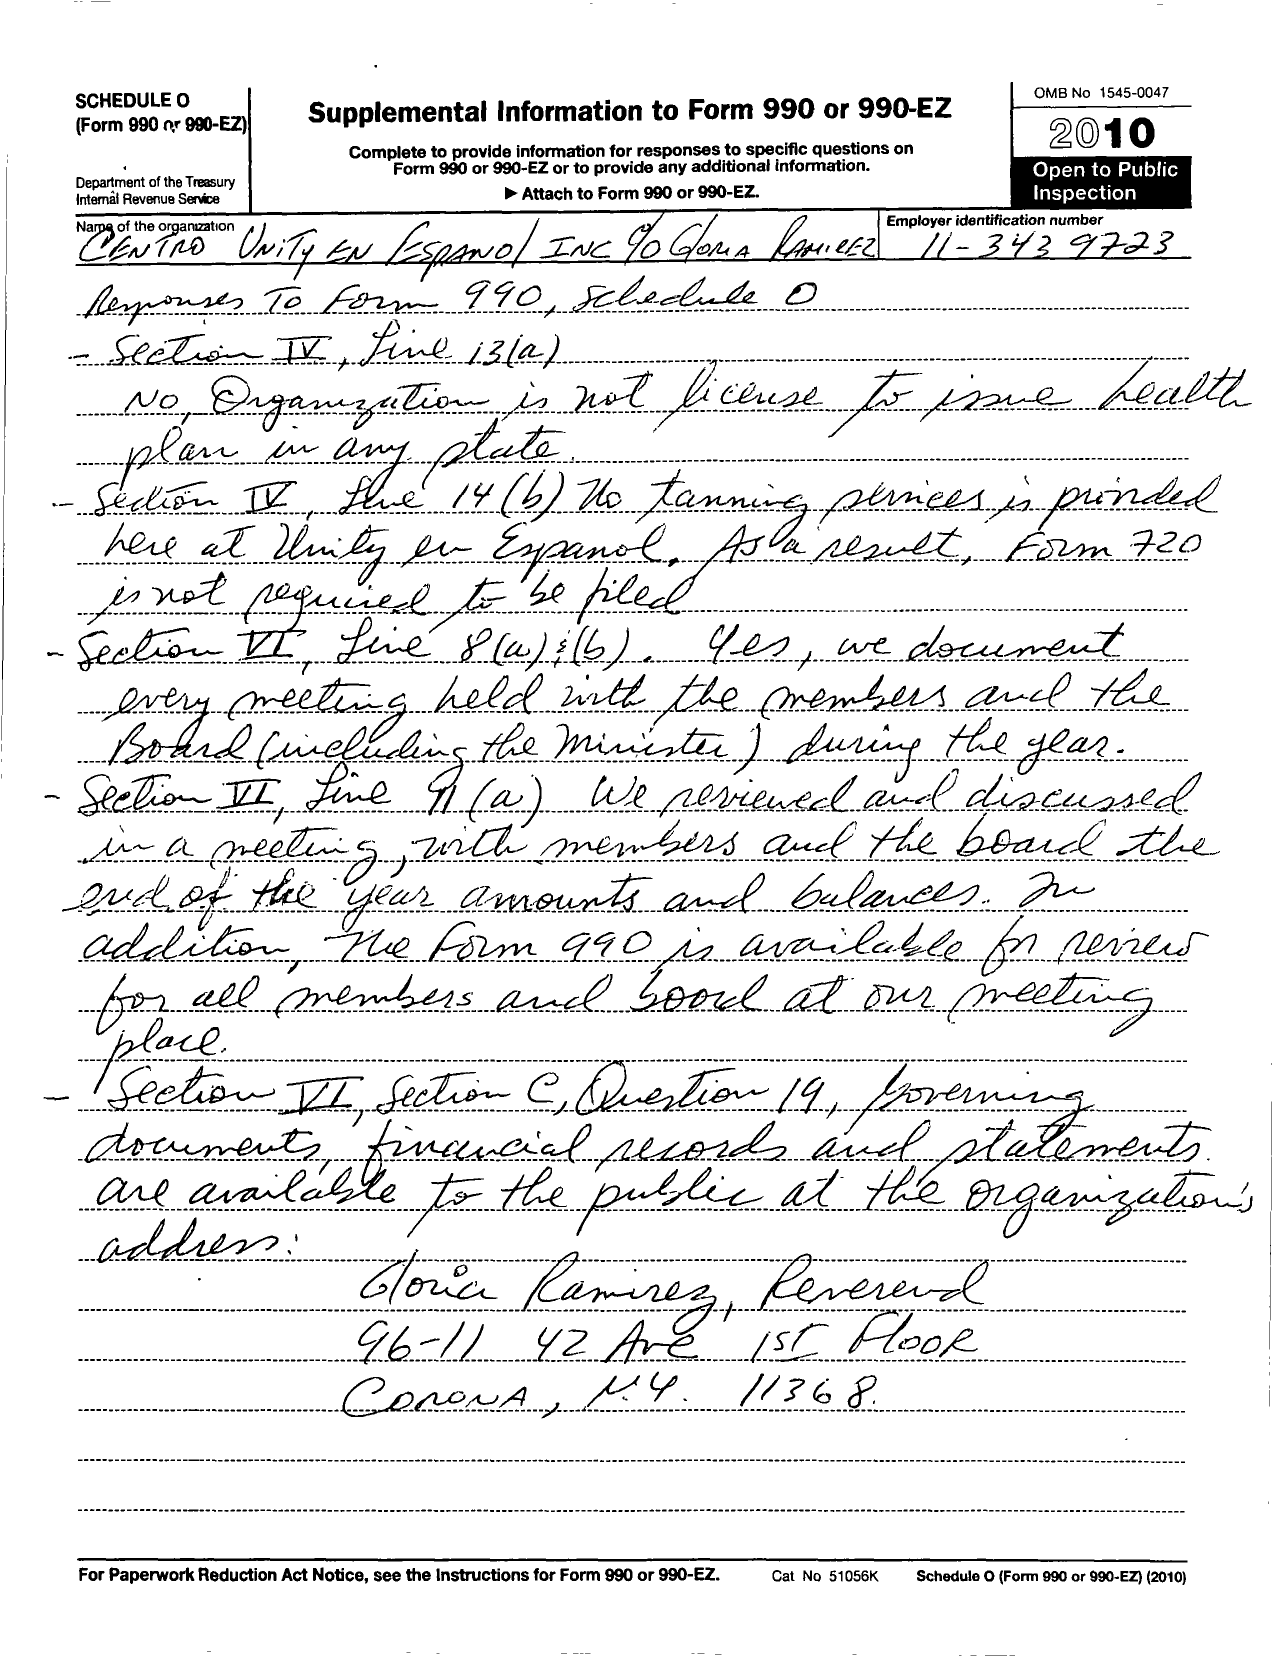 SCHEDULE O
(Form 990 or 990-EZ)
Department of the Treasury
Internal Revenue Service
Supplemental Information to Form 990 or 990-EZ
Complete to provide information for responses to specific questions on
Form 990 or 990-EZ or to provide any additional information.
▶ Attach to Form 990 or 990-EZ.
OMB No 1545-0047
2010
Open to Public
Inspection
Name of the organization
CENTRO UNITY EN ESPANOL INC % GLORIA RAMIREZ
Employer identification number
11-343 9723
Responses To Form 990, Schedule O
- Section IV, Line 13(a)
No, Organization is not license to issue health
plan in any state.
- Section IV, Line 14(b) No tanning services is provided
here at Unity en Espanol. As a result, Form 720
is not required to be filed
- Section VI, Line 8(a) & (b). Yes, we document
every meeting held with the members and the
Board (including the Minister) during the year.
- Section VI, Line 11(a) We reviewed and discussed
in a meeting, with members and the board the
end of the year amounts and balances. In
addition, the Form 990 is available for review
for all members and board at our meeting
place.
- Section VI, Section C, Question 19, Governing
documents, financial records and statements
are available to the public at the organization's
address:
Gloria Ramirez, Reverend
96-11 42 Ave 1st Floor
CORONA, N.Y. 11368.
For Paperwork Reduction Act Notice, see the Instructions for Form 990 or 990-EZ.
Cat No 51056K
Schedule O (Form 990 or 990-EZ) (2010)